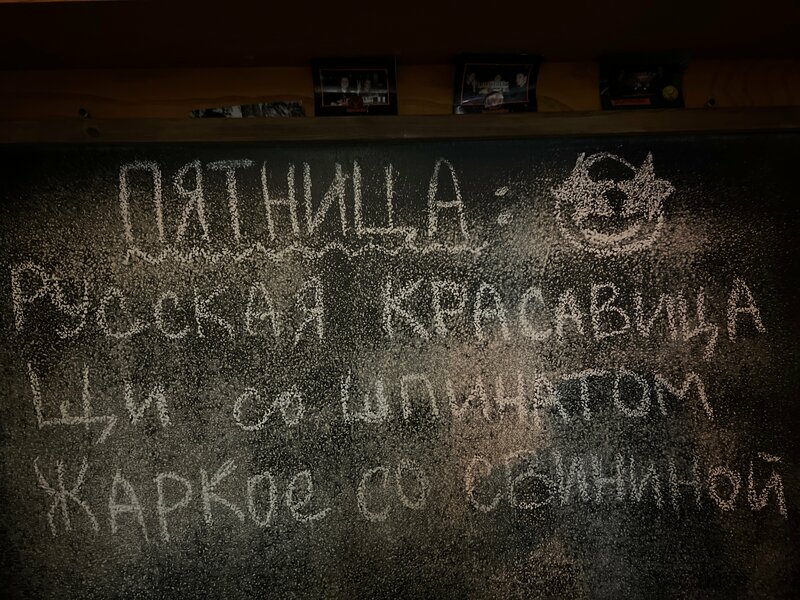 ПЯТНИЦА:
РУССКАЯ КРАСАВИЦА
ЩИ со шпинатом
ЖАРКОЕ СО СВИНИНОЙ